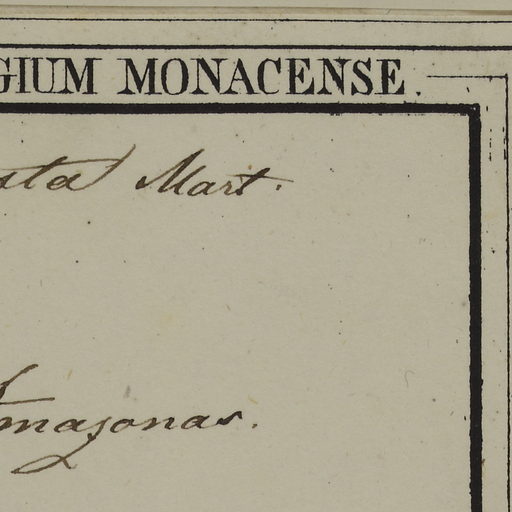 GIUM MONACENSE.
sta Mart.
Amazonas.